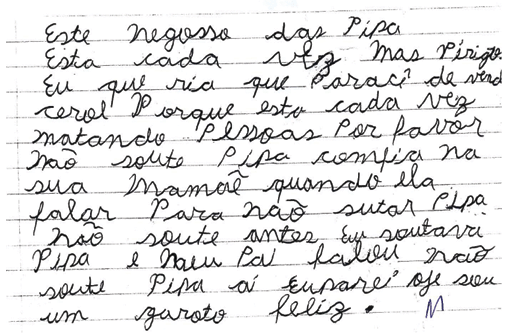 Este negosso das Pipa
Esta cada vez mas Pirigto.
Eu que ria que Paraci de vend
cerol Porque esta cada vez
matando Pessoas Por favor
não soute Pipa comfia na
sua Mamãe quando ela
falar Para não sutar Pipa
não soute antes Eu soutava
Pipa e Meu Pai falou não
soute Pipa aí Euparei oje sou
um garoto feliz. M